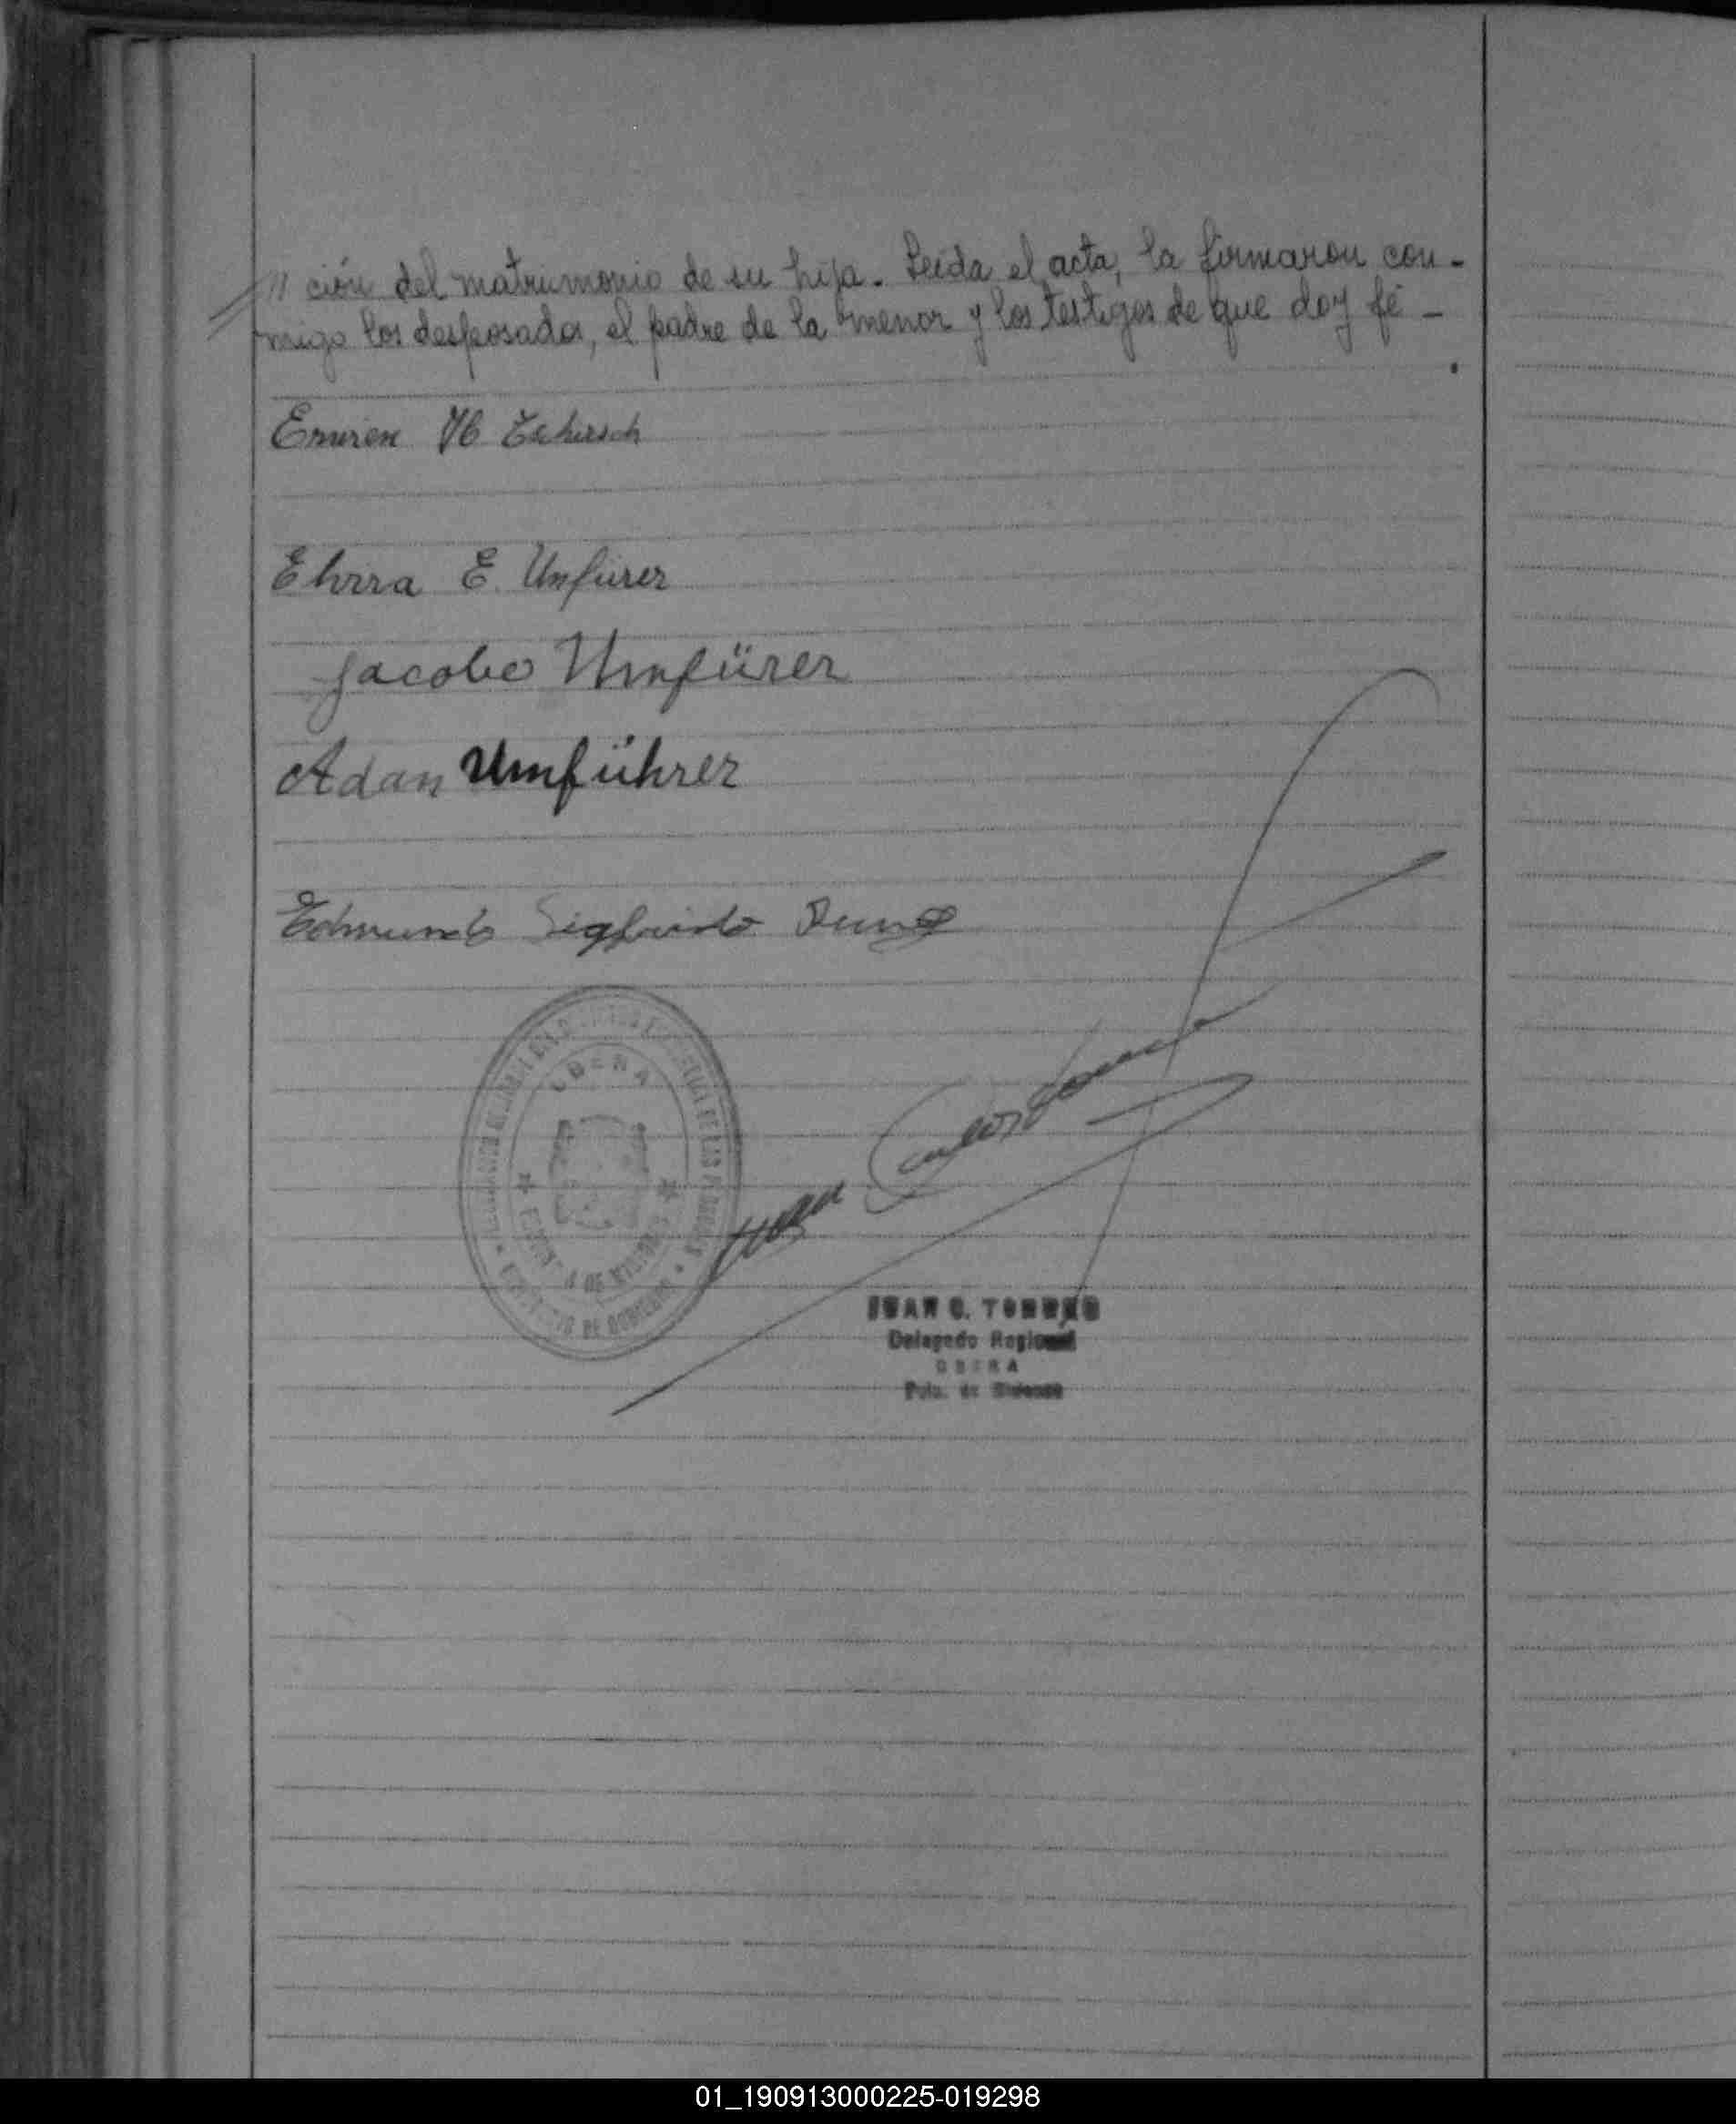 // ción del matrimonio de su hija. Leída el acta, la firmaron con-
migo los desposados, el padre de la menor y los testigos de que doy fé -
H
E. Unfürer
Jacobo Umfürer
Adan Umführer
Edmundo Sigfrido
OBERA
DE GOBIERNO
Juan Carlos
JUAN C. TORRES
Delegado Regional
OBERA
de Misiones
01_190913000225-019298